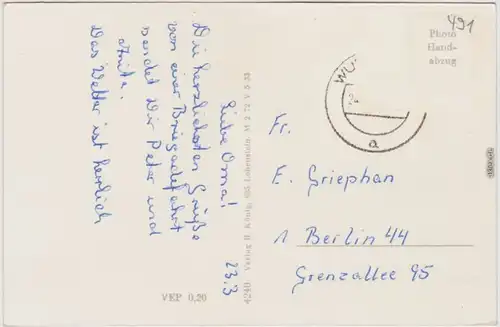 23.3
Liebe Oma!
Die herzlichsten Grüße
von einer Brigadefahrt
sendet Dir Peter und
Anita.
Das Wetter ist herrlich
VEP 0,20
4240 Verlag R. König, 685 Lobenstein. M 2 72 V 5 33
491
Photo
Hand-
abzug
WU
a
Fr.
E. Griephan
1 Berlin 44
Grenzallee 95